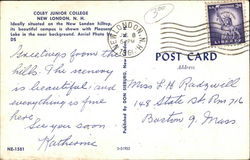 COLBY JUNIOR COLLEGE
NEW LONDON, N. H.
Ideally situated on the New London hilltop,
its beautiful campus is shown with Pleasant
Lake in the near background. Aerial Photo
DS
Greetings from the
hills. The scenery
is beautiful and
everything is fine
here.
See you soon
Katherine
NE-1581
S-51952
POST CARD
Address
Miss L H Radzwell
148 State St Rm 716
Boston 9 Mass.